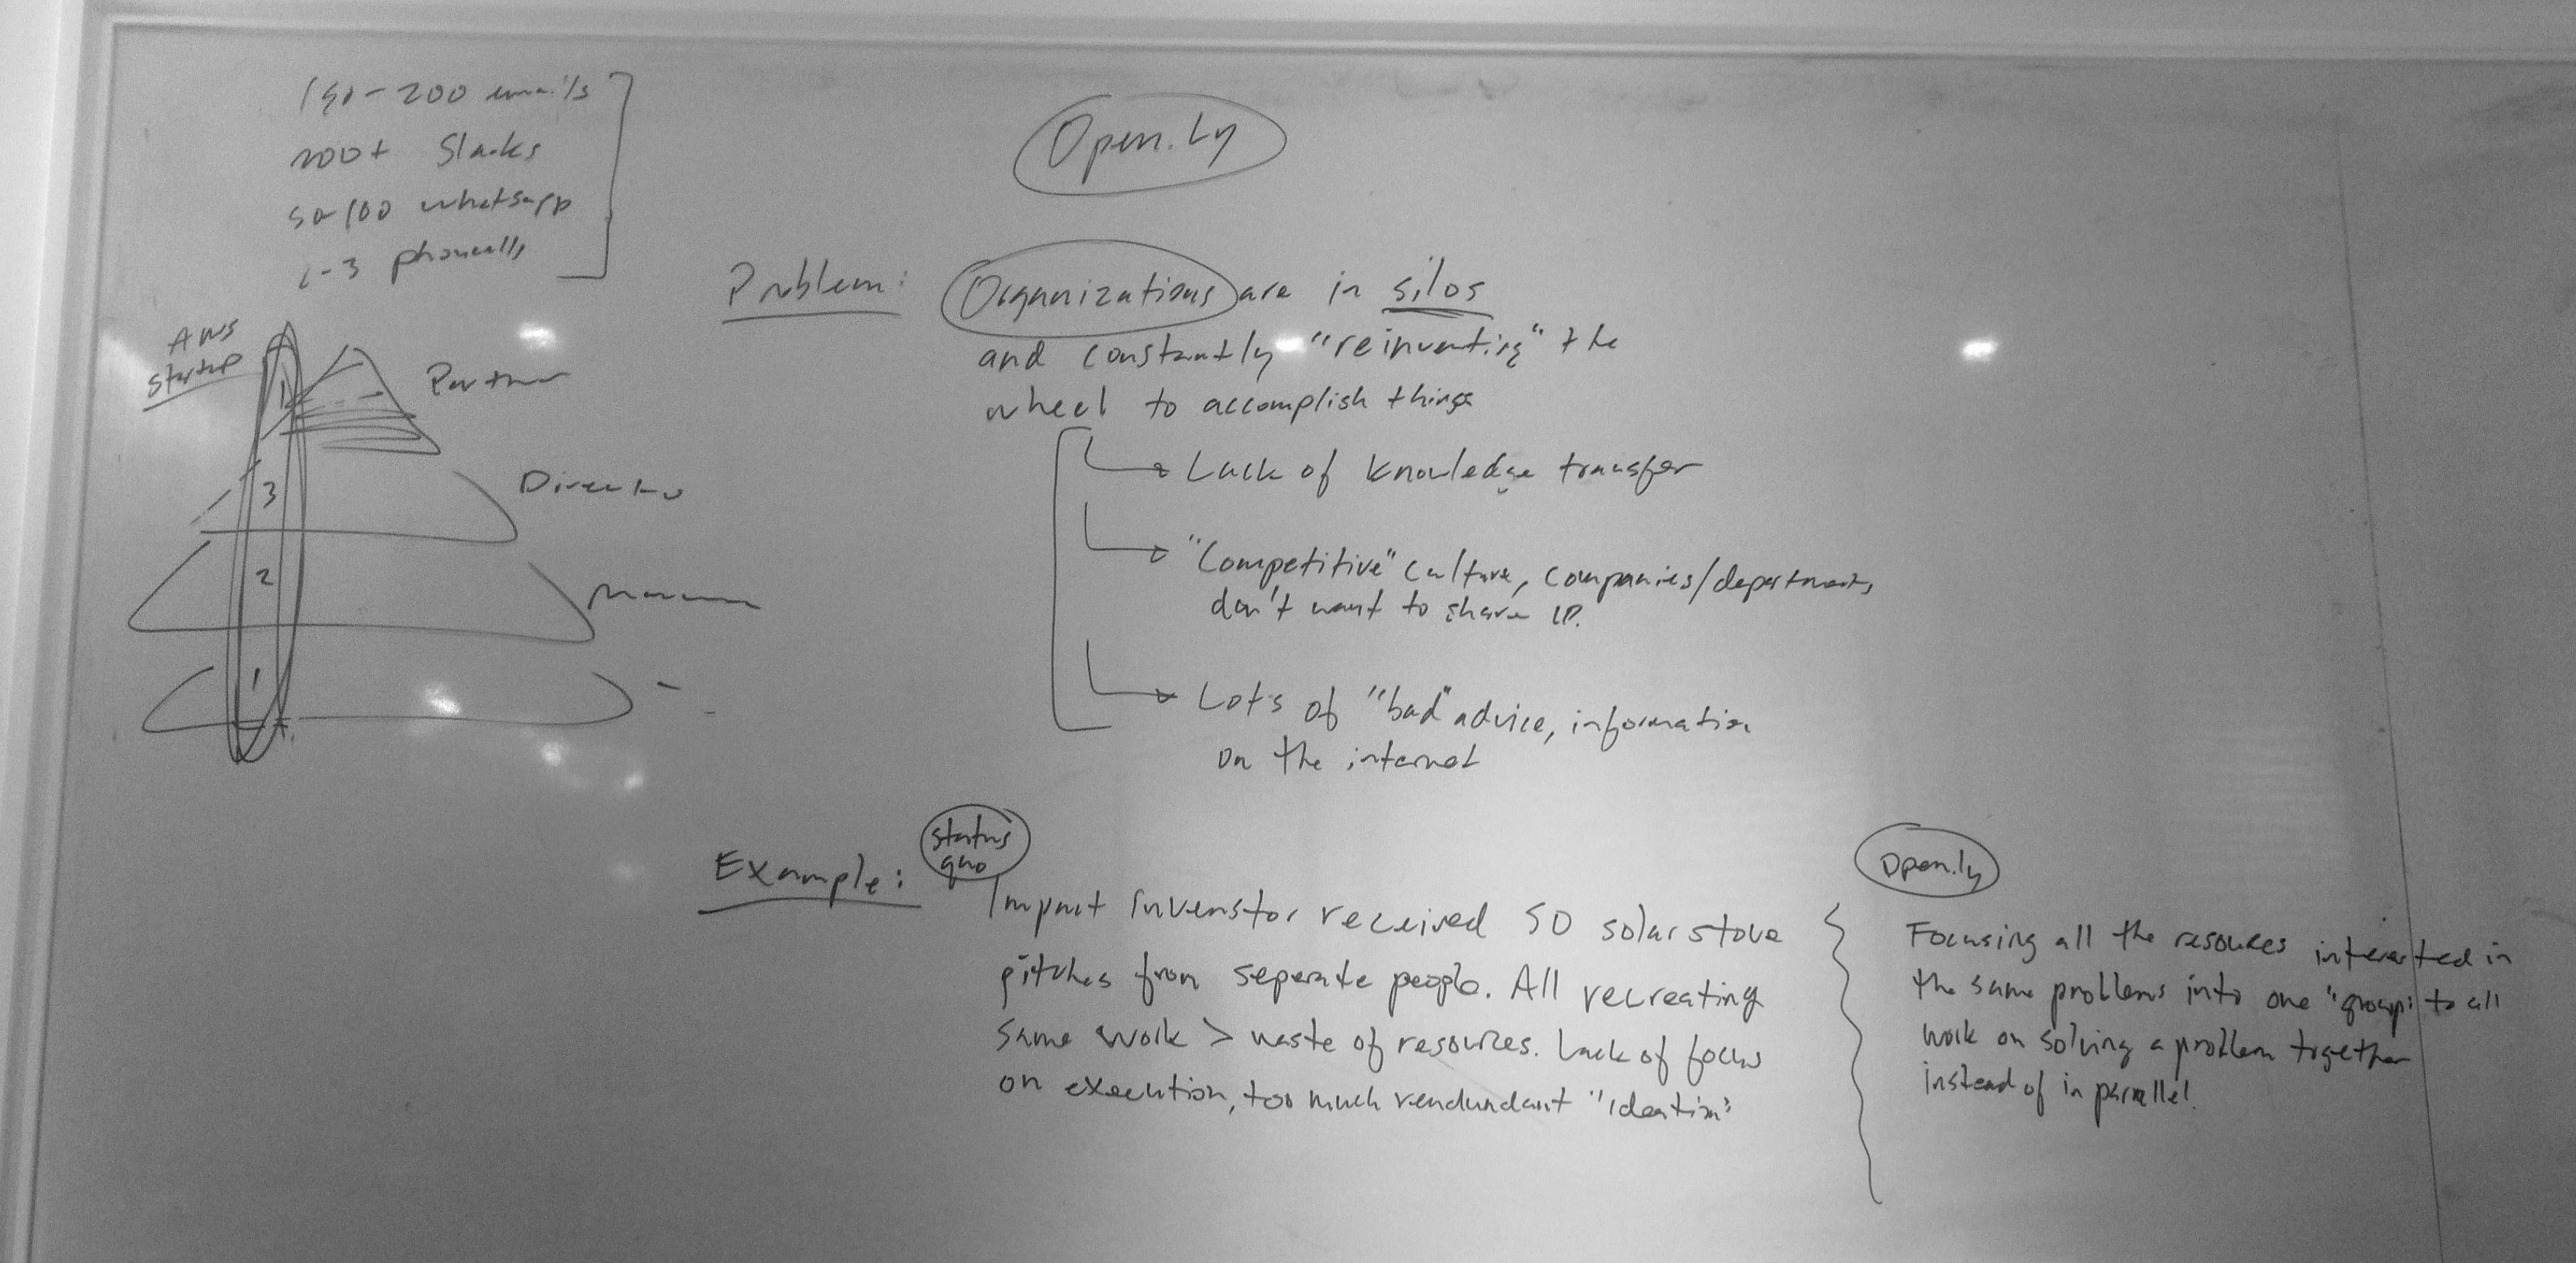 150-200 emails
200+ Slacks
50-100 whatsapp
1-3 phonecalls
Open.ly
Problem: Organizations are in silos
and constantly "reinventing" the
wheel to accomplish things
Lack of knowledge transfer
"Competitive" culture, companies/departments
don't want to share IP.
Lots of "bad" advice, information
on the internet
AWS
startup
1
Partner
3
Director
2
1
Example:
status
quo
Impact invenstor received 50 solar stove
pitches from seperate people. All recreating
same work > waste of resources. Lack of focus
on execution, too much rendundant "ideation"
Open.ly
Focusing all the resources interested in
the same problems into one "group" to all
work on solving a problem together
instead of in parallel.